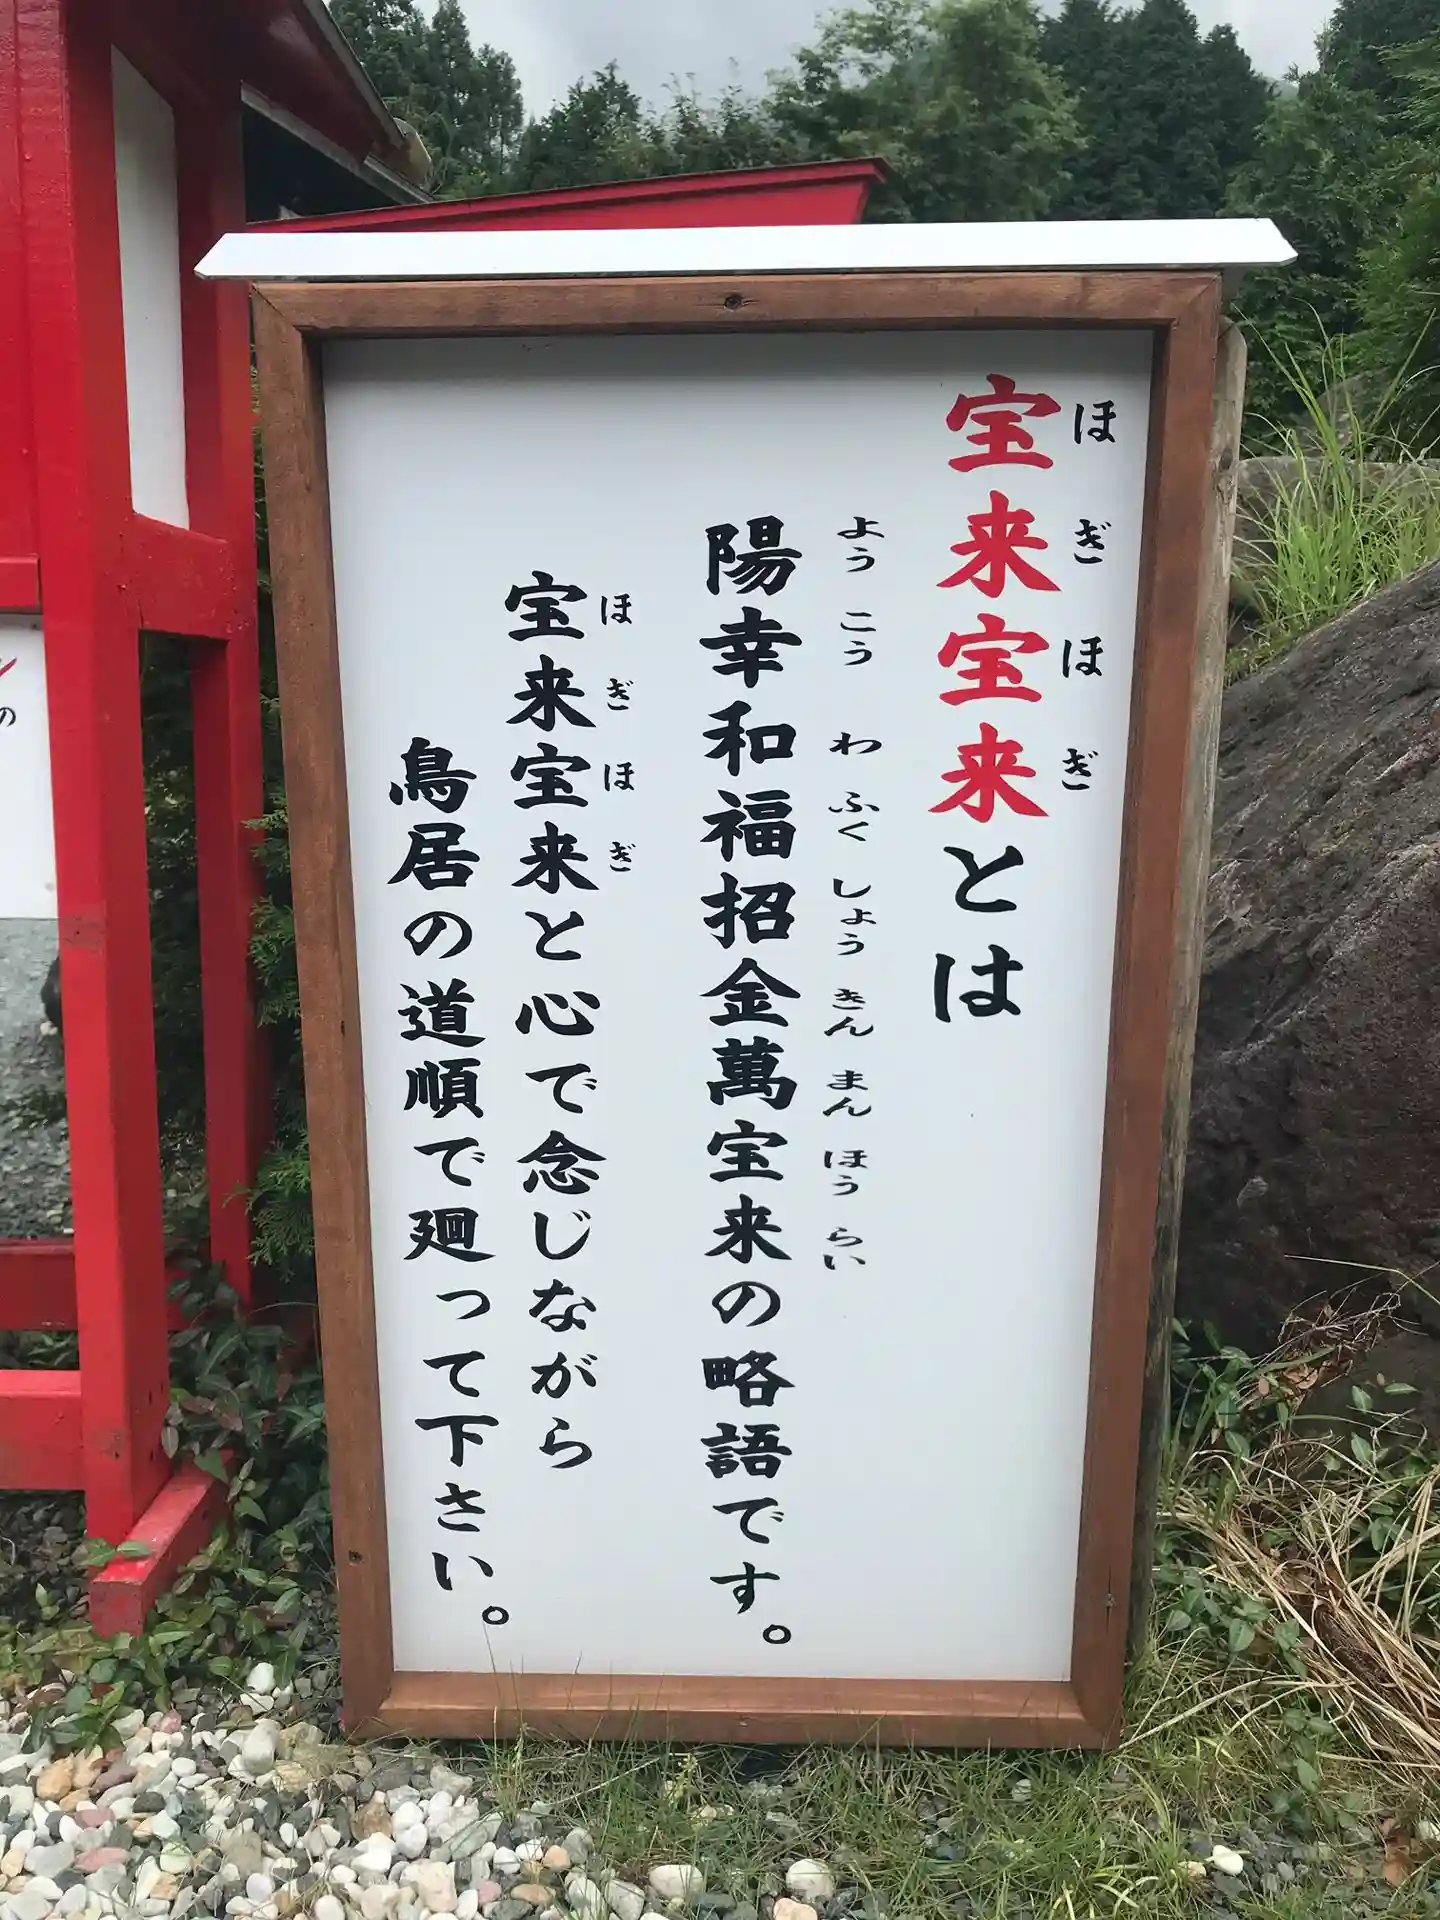 宝来宝来とは
ほぎほぎ
陽幸和福招金萬宝来の略語です。
ようこうわふくしょうきんまんほうらい
宝来宝来と心で念じながら
ほぎほぎ
鳥居の道順で廻って下さい。
の